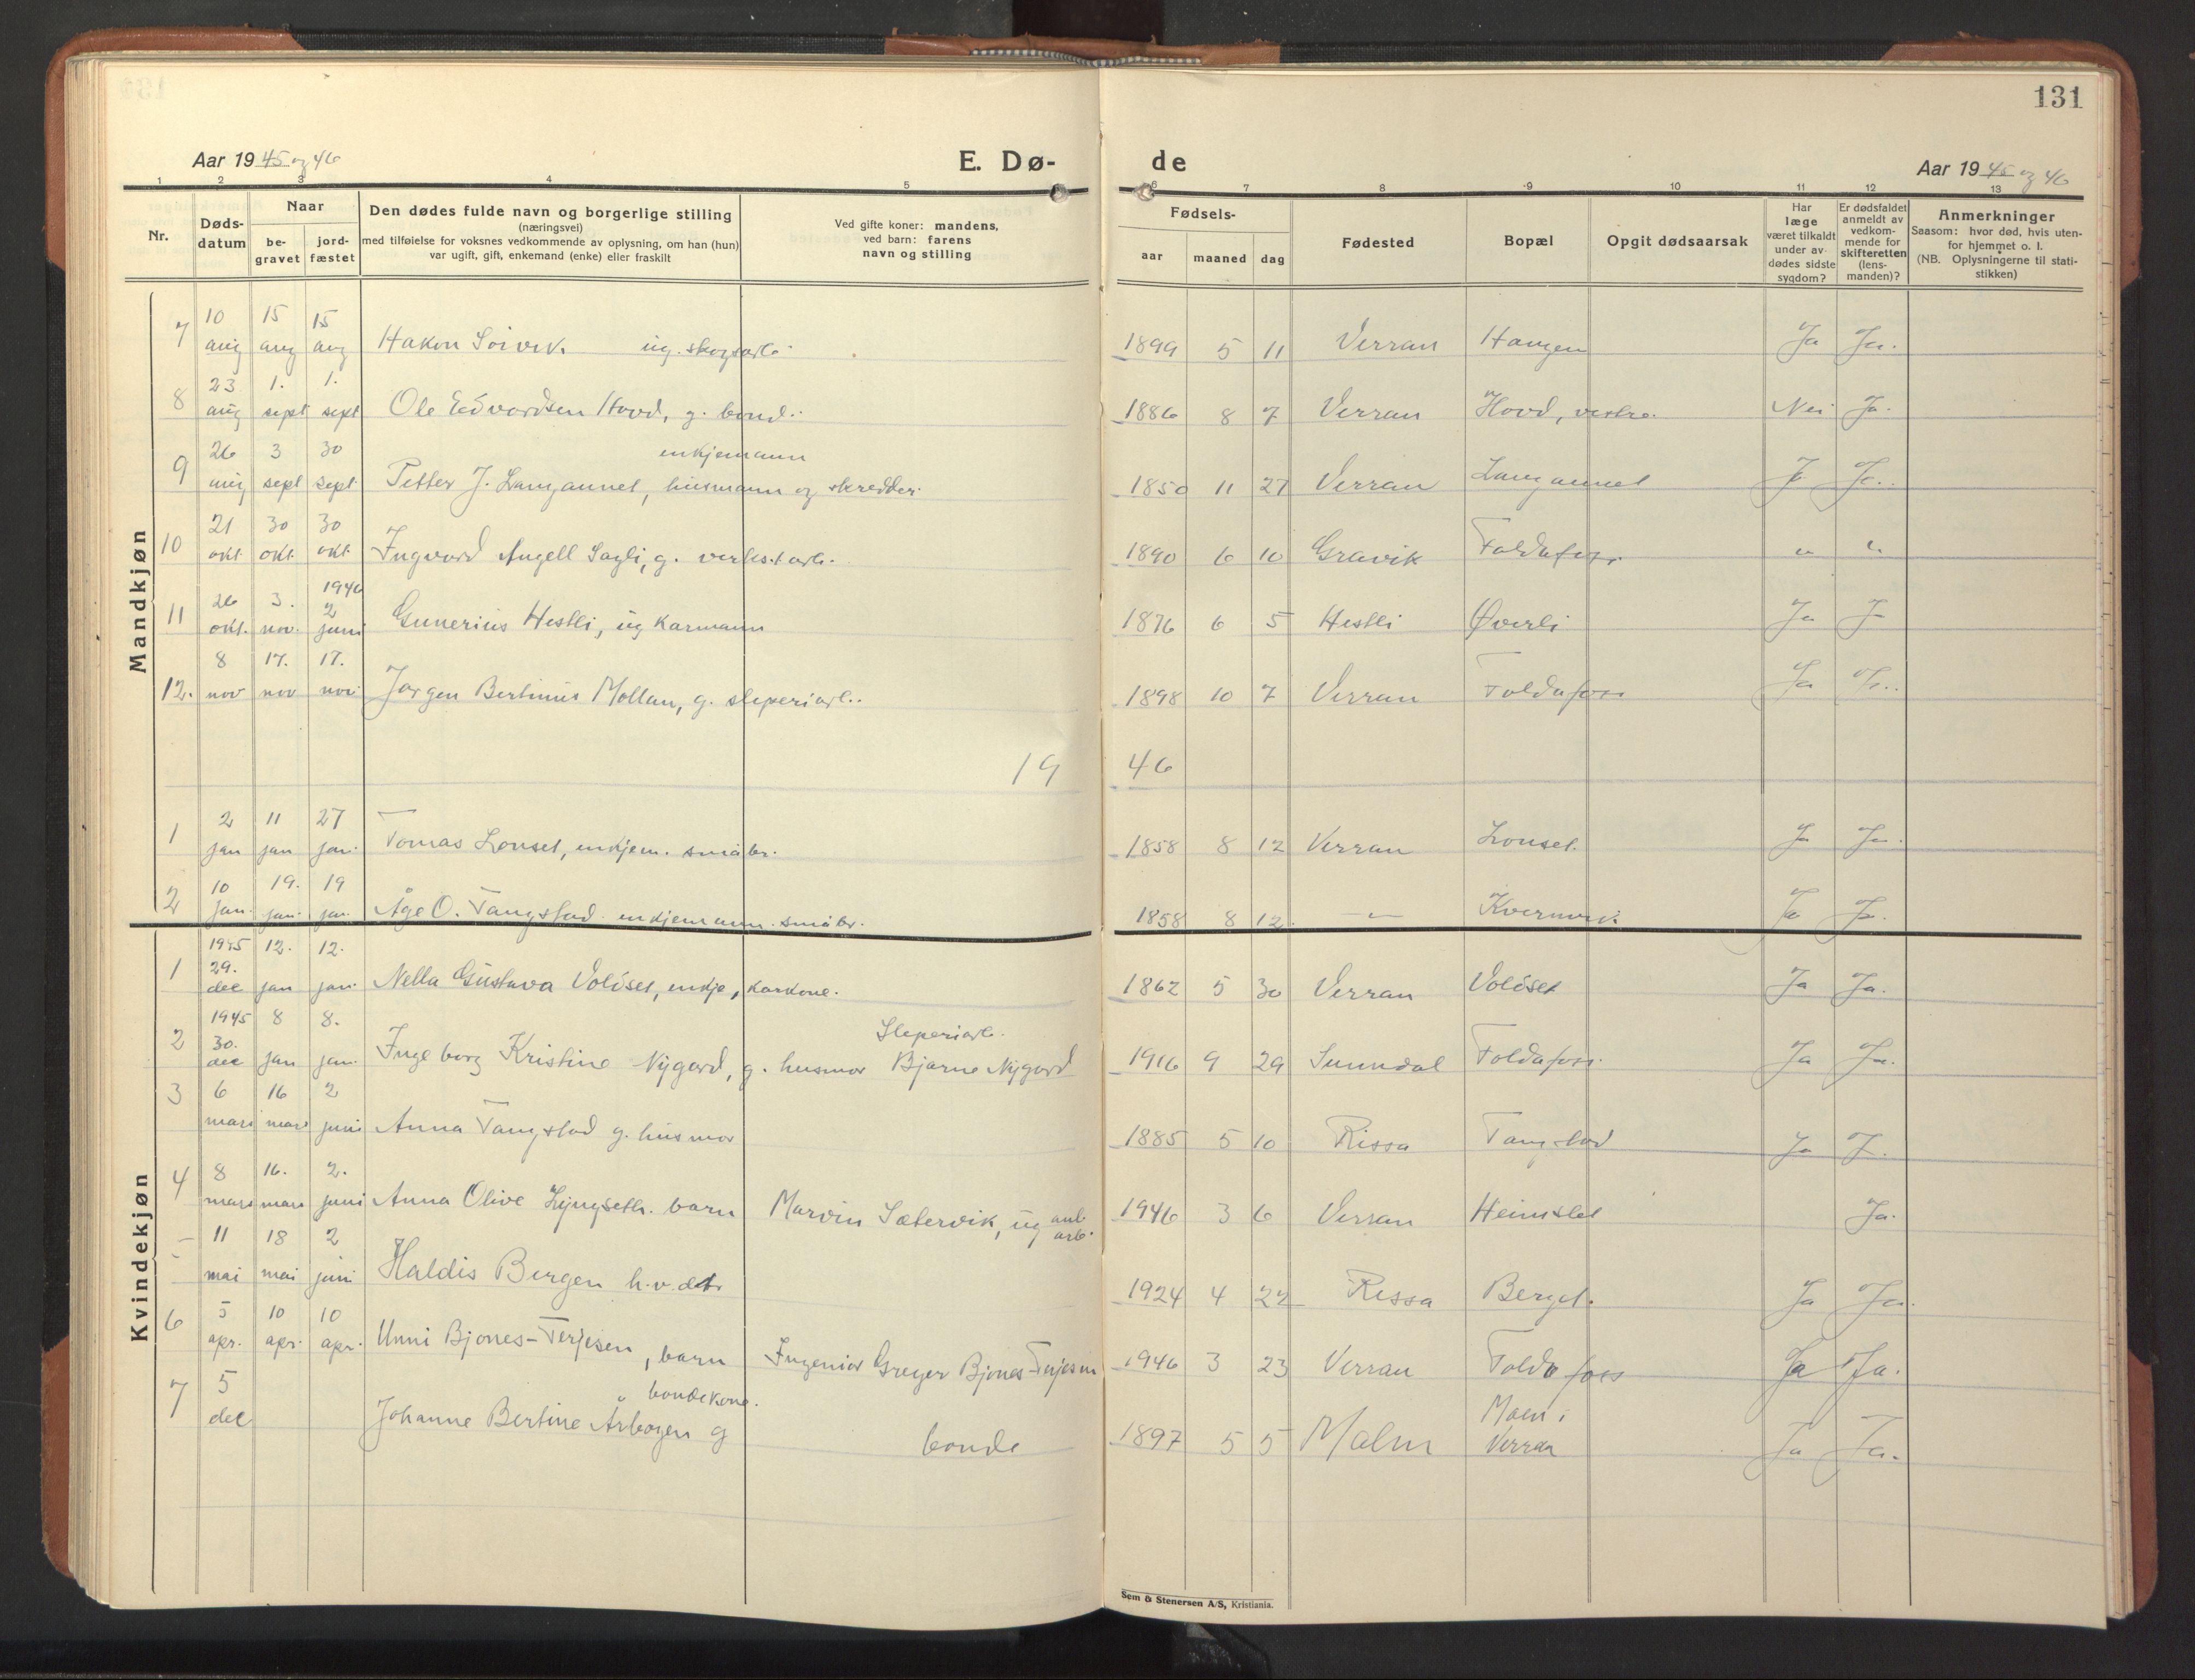 131
Aar 1945 og 46
E. Dø-
de
Aar 1945 og 46
1 2 3 4 5 6 7 8 9 10 11 12 13
Nr.
Døds-
datum
Naar
be-
gravet
jord-
fæstet
Den dødes fulde navn og borgerlige stilling
(næringsvei)
med tilføielse for voksnes vedkommende av oplysning, om han (hun)
var ugift, gift, enkemand (enke) eller fraskilt
Ved gifte koner: mandens,
ved barn: farens
navn og stilling
Fødsels-
aar maaned dag
Fødested
Bopæl
Opgit dødsaarsak
Har
læge
været tilkaldt
under av-
dødes sidste
sygdom?
Er dødsfaldet
anmeldt av
vedkom-
mende for
skifteretten
(lens-
manden)?
Anmerkninger
Saasom: hvor død, hvis uten-
for hjemmet o. l.
(NB. Oplysningerne til stati-
stikken)
Mandkjøn
10 15 15
7 aug aug aug Hakon ug. skogsarb. 1899 5 11 Verran Haugen Ja Ja.
23 1. 1.
8 aug sept sept Ole Edvardsen Hovd, g. bond. 1886 8 7 Verran Hovd, vestre. Nei Ja.
26 3 30 enkjemann
9 aug sept sept Petter J. Langannet, husmann og skredder. 1850 11 27 Verran Langannet Ja.
21 30 30
10 okt. okt. okt. Ingvard Angell Sagli, g. verkst.arb. 1890 6 10 Gravik Foldafoss. " "
1946
26 3. 2
11 okt. nov. juni Gunerius Hestli, ug karmann 1876 6 5 Hestli Øverli Ja J
8 17. 17.
12. nov nov nov Jørgen Bertinus Moltau, g. sleperiarb. 1898 10 7 Verran Foldafoss Ja Ja.
19 46
2 11 27
1 jan jan jan. Tomas Lonset, enkjem. småbr. 1858 8 12 Verran Lonset. Ja Ja.
10 19. 19
2 jan. jan. jan. Åge O. Tangstad enkjemann. småbr. 1858 8 12. -"- Kvernvik. Ja Ja.
Kvindekjøn
1945 12. 12.
29.
1 dec jan jan. Nella Gustava Volöset, enkje, karkone. 1862 5 30 Verran Volöset Ja Ja.
1945 8 8.
30. Sleperiarb.
2 dec jan jan. Ingeborg Kristine Nygård, g. husmor Bjarne Nygård 1916 9 29 Sunndal Foldafoss. Ja Ja.
3 6 16 2
mars mars juni Anna Tangstad g. husmor 1885 5 10 Rissa Tangstad Ja J.
4 8 16. 2.
mars mars juni Anna Olive Lyngseth. barn Marvin Sætervik, ug anl. arb. 1946 3 6 Verran Heimslet Ja.
11 18 2
mai mai juni Haldis Bergen h.v. dtr 1924 4 22 Rissa Berget. Ja Ja.
6 5 10 10
apr. apr. apr. Unni Bjones-Terjesen, barn Ingeniør Greger Bjones-Terjesen 1946 3 23 Verran Foldafoss Ja Ja.
7 5 bondekone. Malm i
dec Johanne Bertine Årbogen g bonde 1897 5 5 Malm Verran Ja Ja.
Sem & Stenersen A/S, Kristiania.